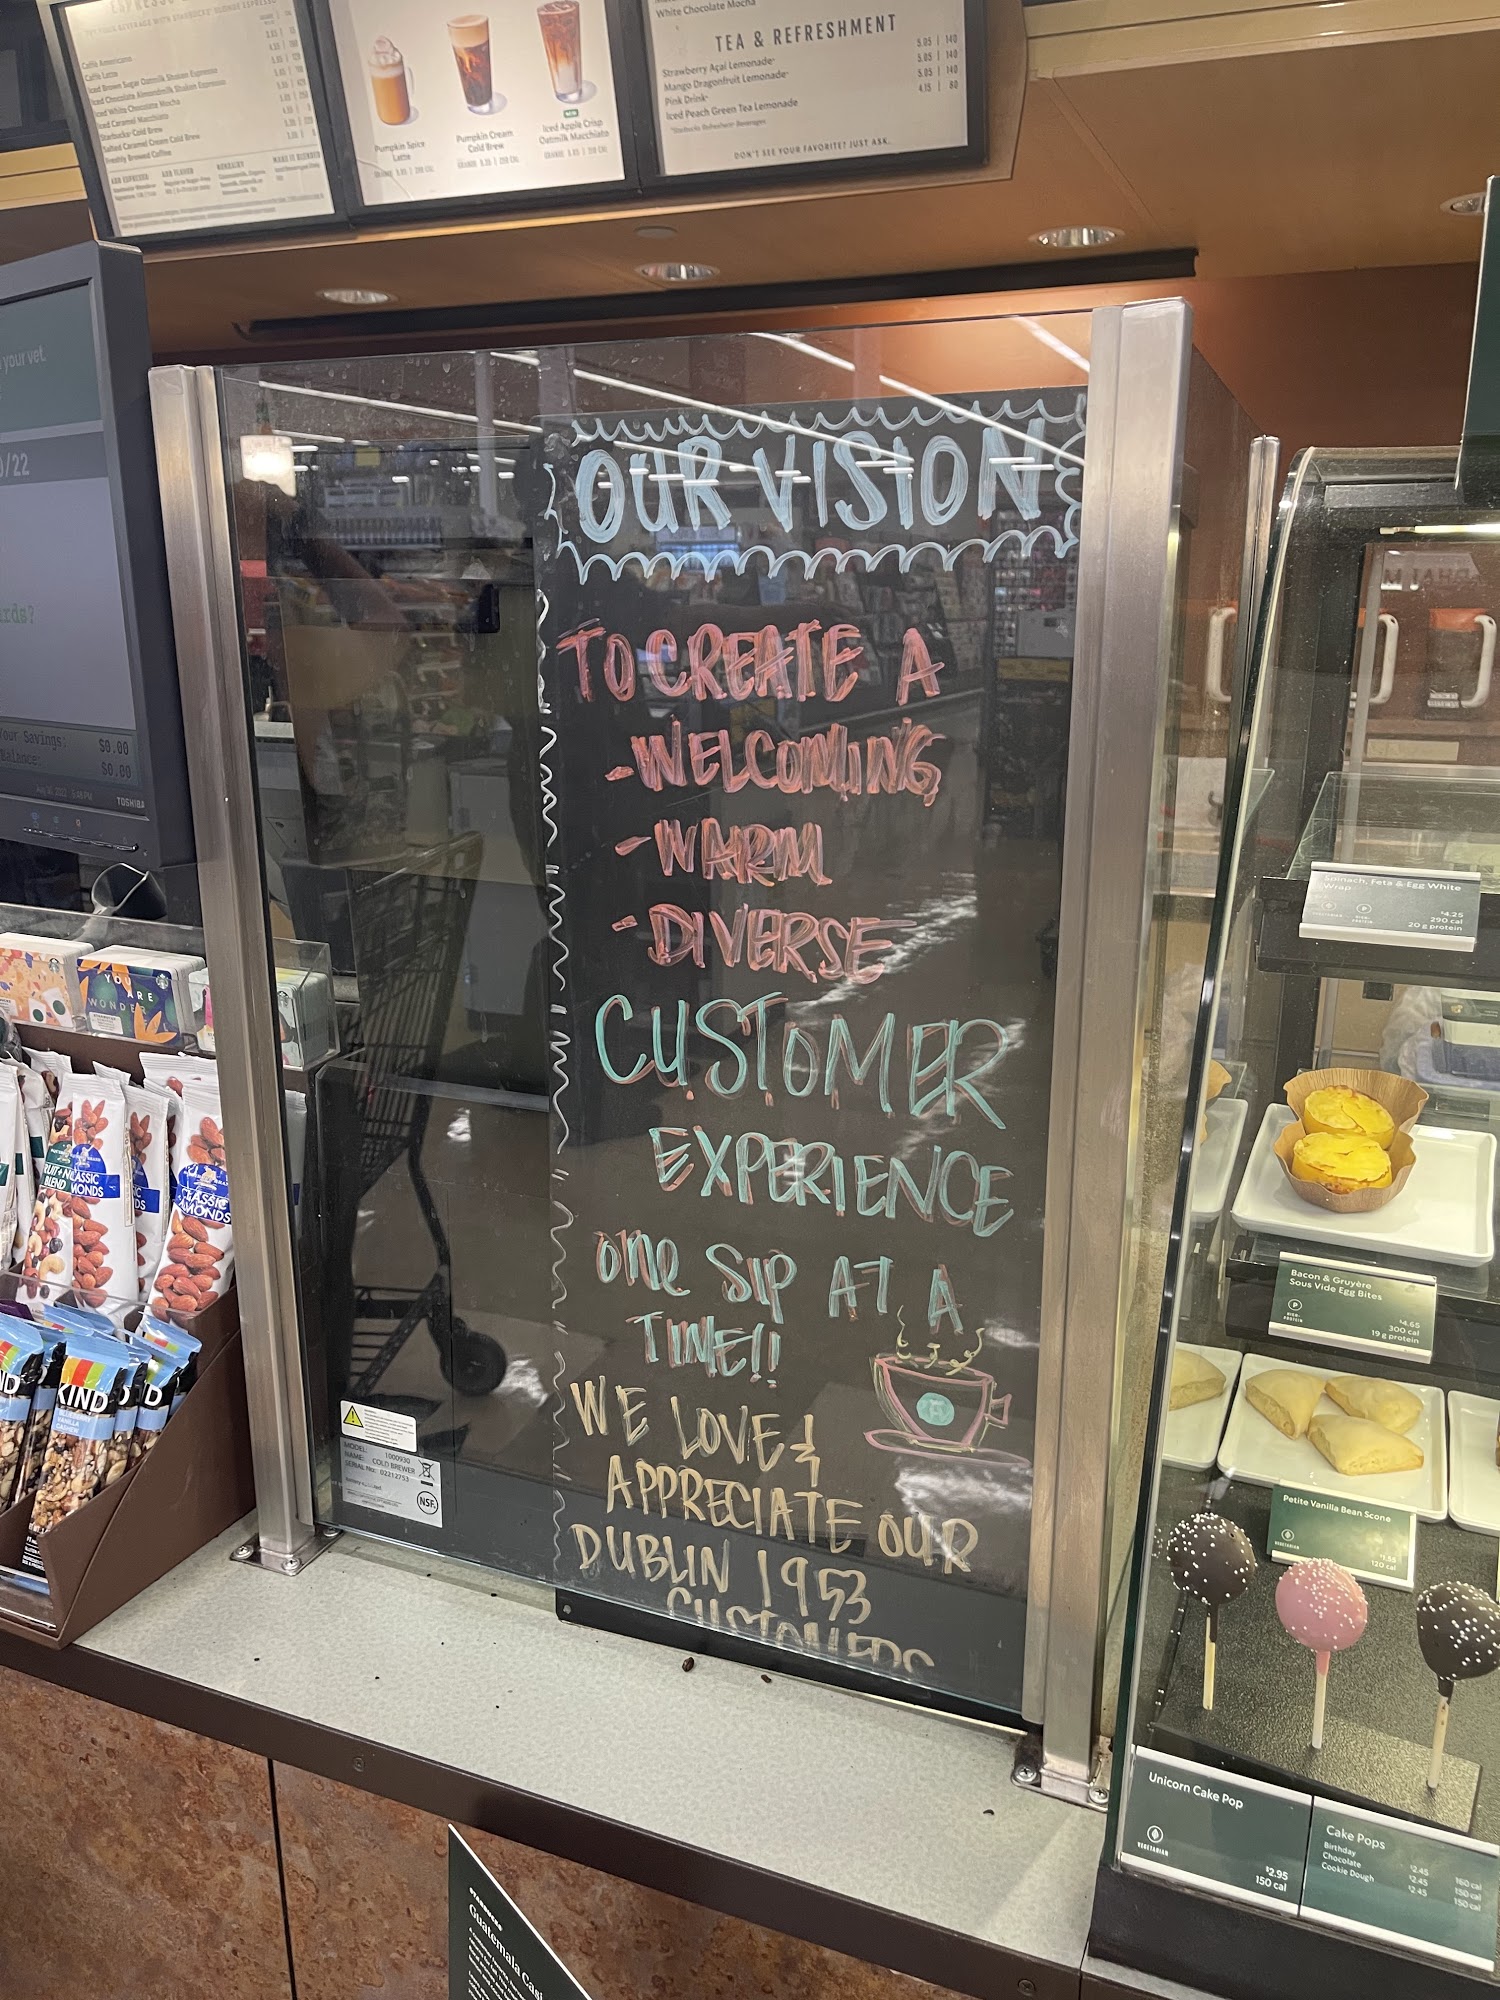 Caffè Americano
Caffè Latte
Iced Brown Sugar Oatmilk Shaken Espresso
Iced Chocolate Almondmilk Shaken Espresso
Iced White Chocolate Mocha
Iced Caramel Macchiato
Starbucks Cold Brew
Salted Caramel Cream Cold Brew
Freshly Brewed Coffee
Pumpkin Spice
Latte
Pumpkin Cream
Cold Brew
Iced Apple Crisp
Oatmilk Macchiato
White Chocolate Mocha
TEA & REFRESHMENT
Strawberry Açaí Lemonade 5.05 | 140
Mango Dragonfruit Lemonade 5.05 | 140
Pink Drink 5.05 | 140
Iced Peach Green Tea Lemonade 4.15 | 80
DON'T SEE YOUR FAVORITE? JUST ASK.
your vet.
/22
Your Savings: $0.00
Balance: $0.00
TOSHIBA
OUR VISION
TO CREATE A
-WELCOMING,
-WARM
-DIVERSE
CUSTOMER
EXPERIENCE
ONE SIP AT A
TIME!!
WE LOVE &
APPRECIATE OUR
DUBLIN 1953
CUSTOMERS
YOU
ARE
WONDER
CLASSIC
ALMONDS
BLEND
KIND
BLUEBERRY
VANILLA
CASHEW
MODEL: 1000930
NAME: COLD BREWER
SERIAL No: 02212753
NSF
Spinach, Feta & Egg White
Wrap
$4.25
290 cal
20 g protein
Bacon & Gruyère
Sous Vide Egg Bites
$4.65
300 cal
19 g protein
Petite Vanilla Bean Scone
120 cal
Unicorn Cake Pop
VEGETARIAN
$2.95
150 cal
Cake Pops
Birthday $2.45 160 cal
Chocolate $2.45 150 cal
Cookie Dough $2.45 150 cal
STARBUCKS
Guatemala Casi